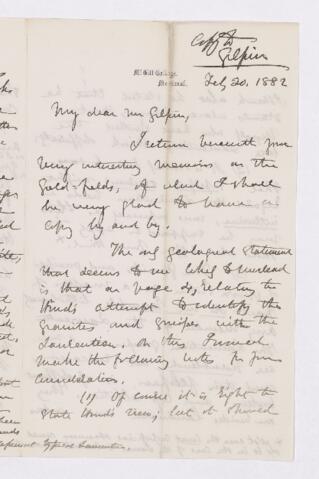 Copy to
Gilpin
McGill College,
Montreal.
Feb 20, 1882
My dear Mr Gilpin,
I return herewith your
very interesting memoirs on the
Gold-fields, of which I shall
be very glad to have a
copy by and by.
The only geological statement
that seems to me likely to mislead
is that on page 29, relating to
Hind's attempt to identify the
granites and gneisses with the
Laurentian. On this I would
make the following notes for your
consideration.
(1) Of course it is right to
state Hind's view; but it should